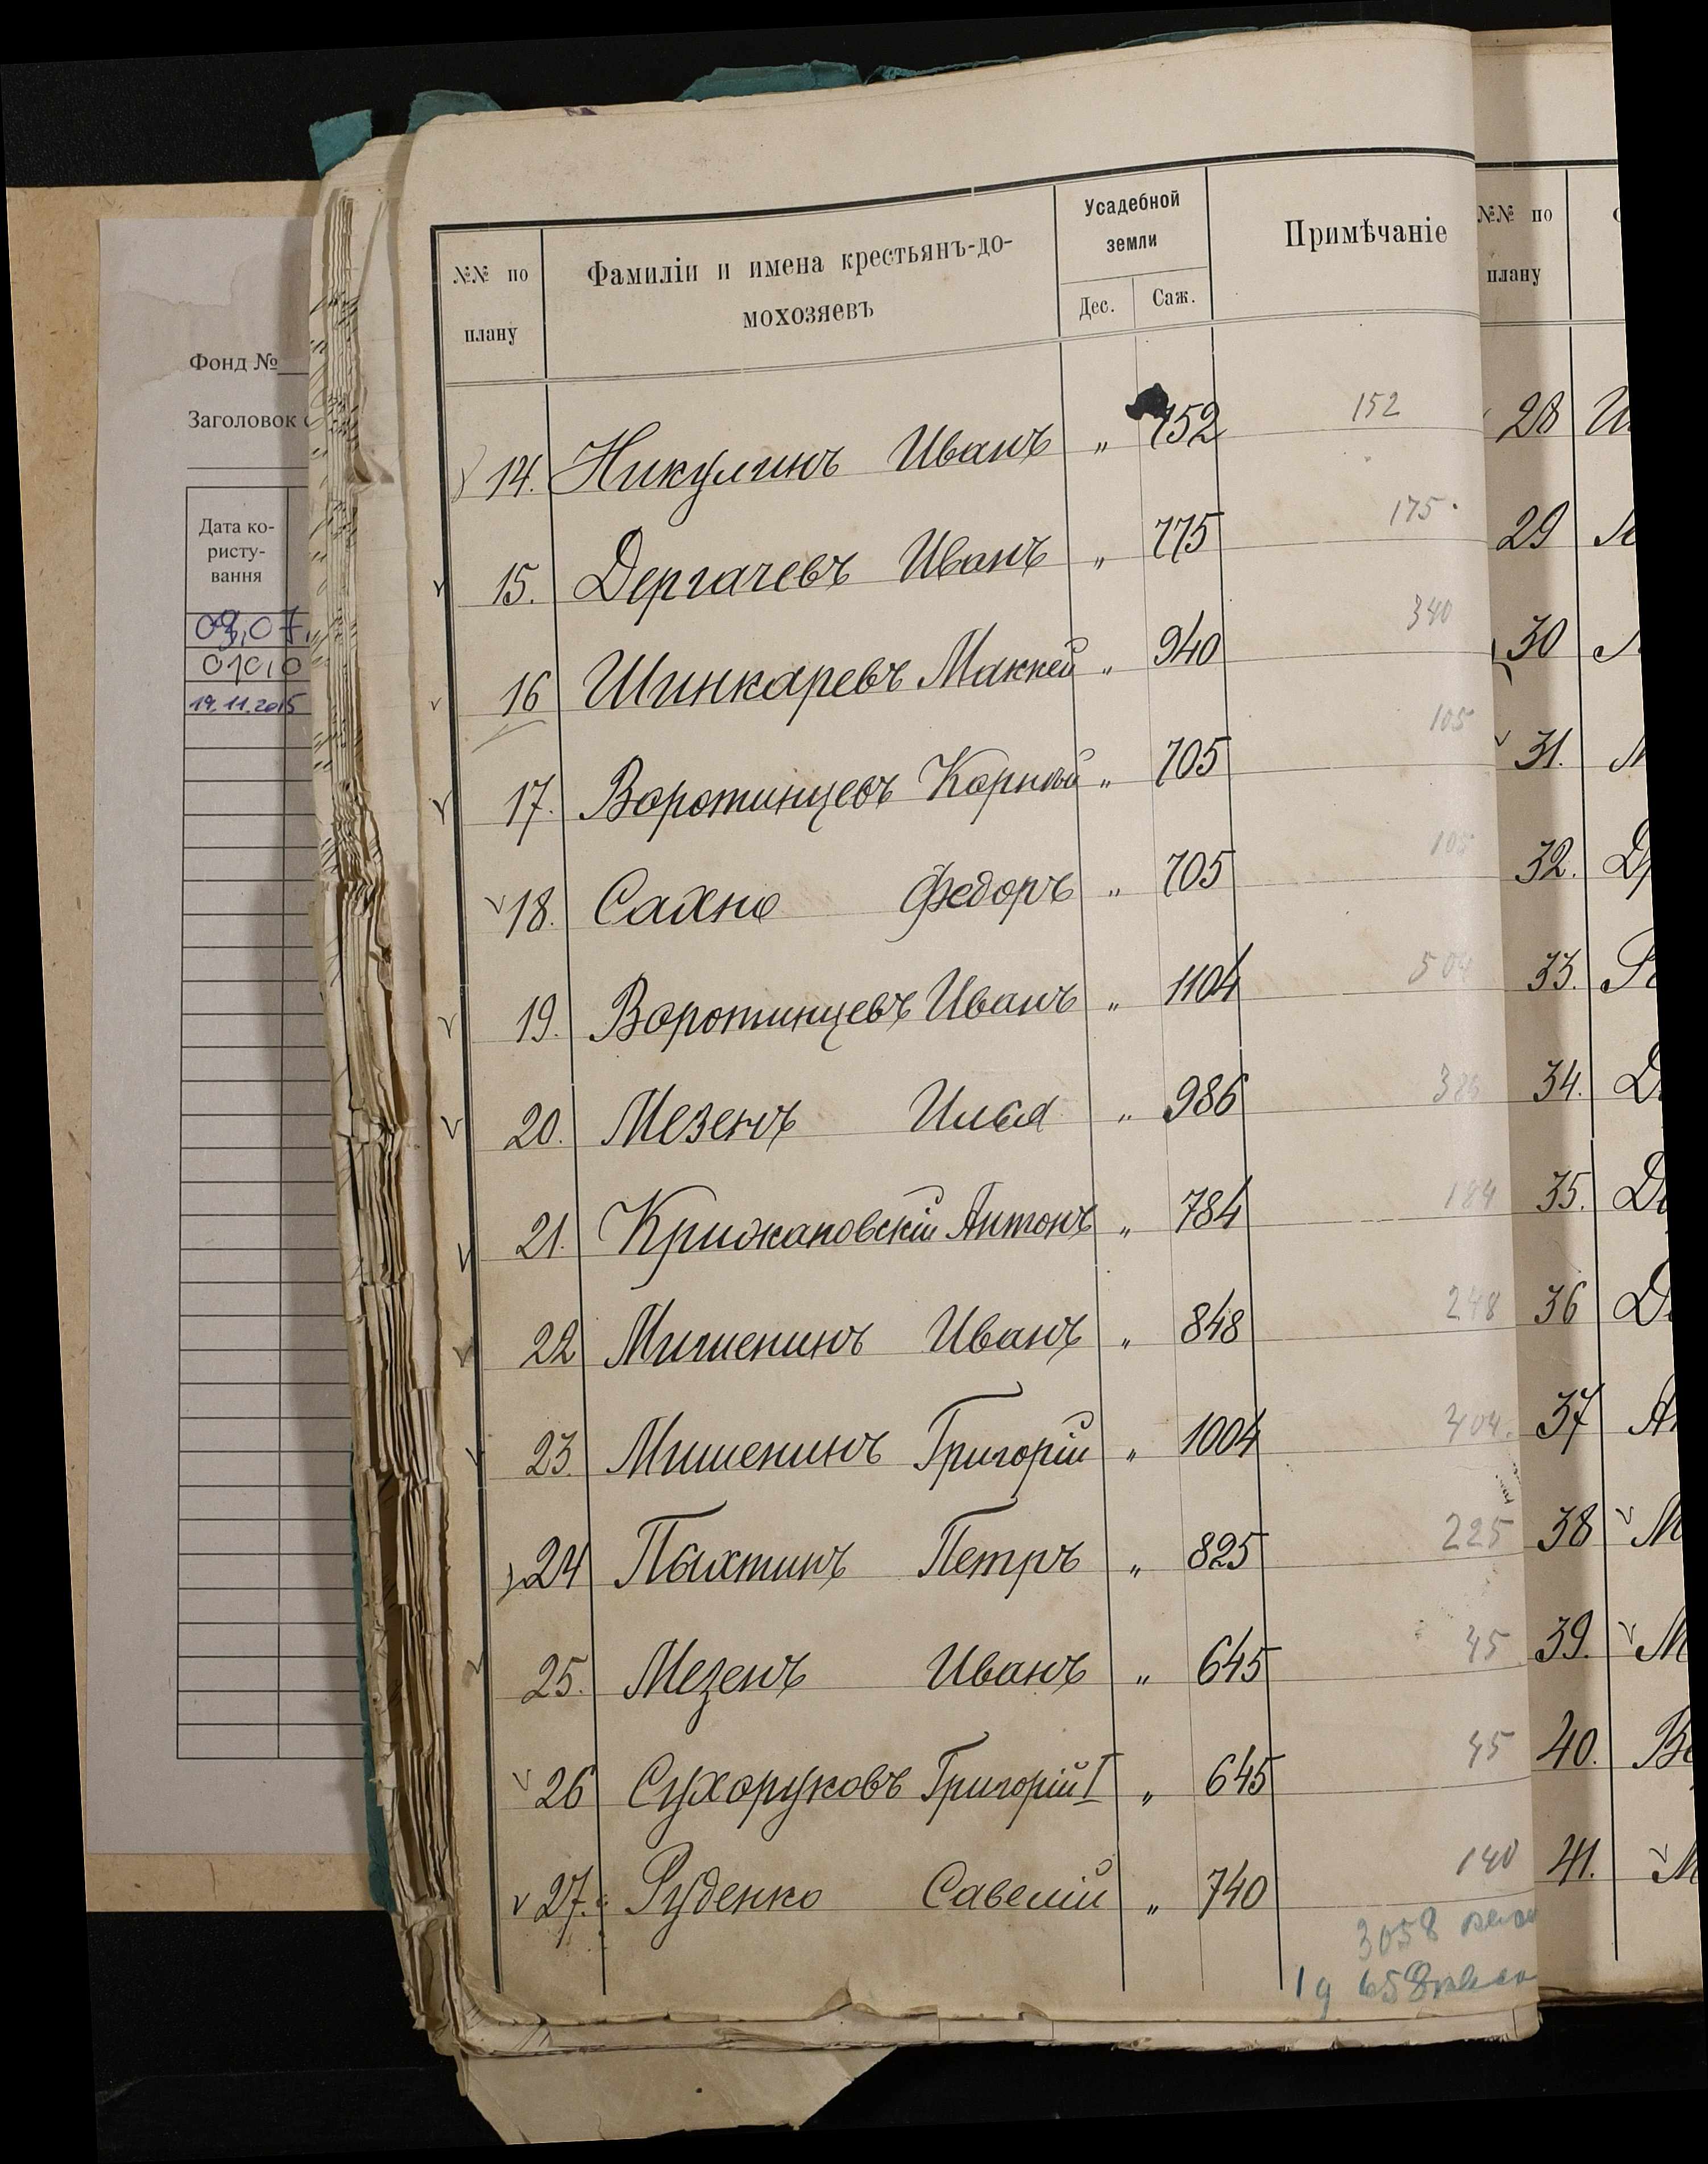 Фонд №
Заголовок
Дата ко-
ристу-
вання
09.07.
19.11.2015
№№ по
плану
Фамиліи и имена крестьянъ-до-
мохозяевъ
Усадебной
земли
Дес. Саж.
Примѣчаніе
14. Никулинъ Иванъ „ 752 152
15. Дергачевъ Иванъ „ 775 175.
16 Шинкаревъ Маккей „ 940 340
17. Воротинцевъ Корней „ 705 105
18. Сахно Федоръ „ 705 105
19. Воротинцевъ Иванъ „ 1104 504
20. Мезенъ Илья „ 986 386
21. Крижановскій Антонъ „ 784 184
22 Мишенинъ Иванъ „ 848 248
23. Мишенинъ Григорій „ 1004 404.
24 Пахтинъ Петръ „ 825 225
25. Мезенъ Иванъ „ 645 45
26 Сухоруковъ Григорій I „ 645 45
27. Руденко Савелій „ 740 140
3058
1 g 658
№№ по
плану
28
29
30
31.
32.
33.
34.
35.
36
37
38
39.
40.
41.